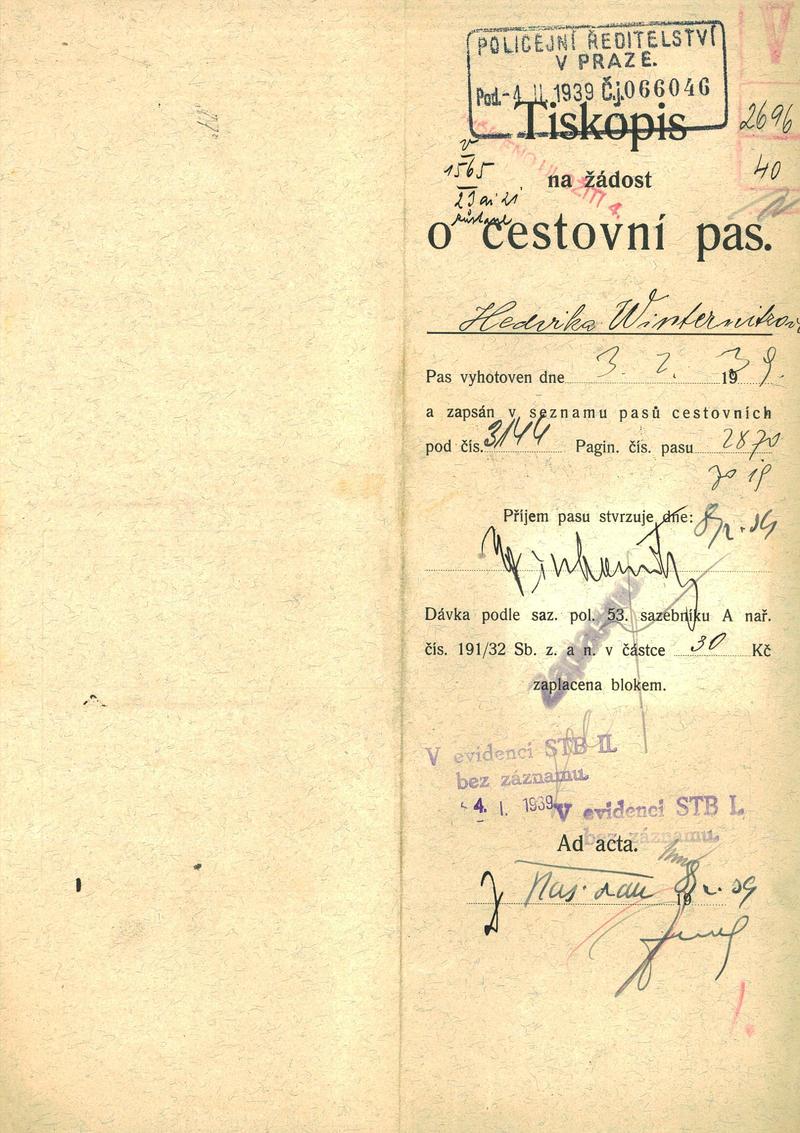 POLICEJNÍ ŘEDITELSTVÍ
V PRAZE.
Pod. -4. II. 1939 Č.j. 066046
V
2696
Tiskopis
40
v
1565
na žádost
o cestovní pas.
Hedvika Winternitzová
Pas vyhotoven dne 3. 2. 1939.
a zapsán v seznamu pasů cestovních
pod čís. 3144 Pagin. čís. pasu 2870
Příjem pasu stvrzuje dne: 8/2. 39
Dávka podle saz. pol. 53. sazebníku A nař.
čís. 191/32 Sb. z. a n. v částce 30 Kč
zaplacena blokem.
V evidenci STB II.
bez záznamu.
4. I. 1939
V evidenci STB I.
bez záznamu.
Ad acta.
19